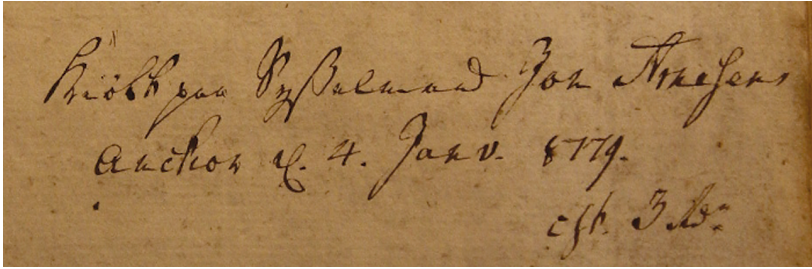 Kiöbt paa Sysselmand Jon Arnesens
Auction d. 4. Janv. 1779.
cst. 3 Rdr